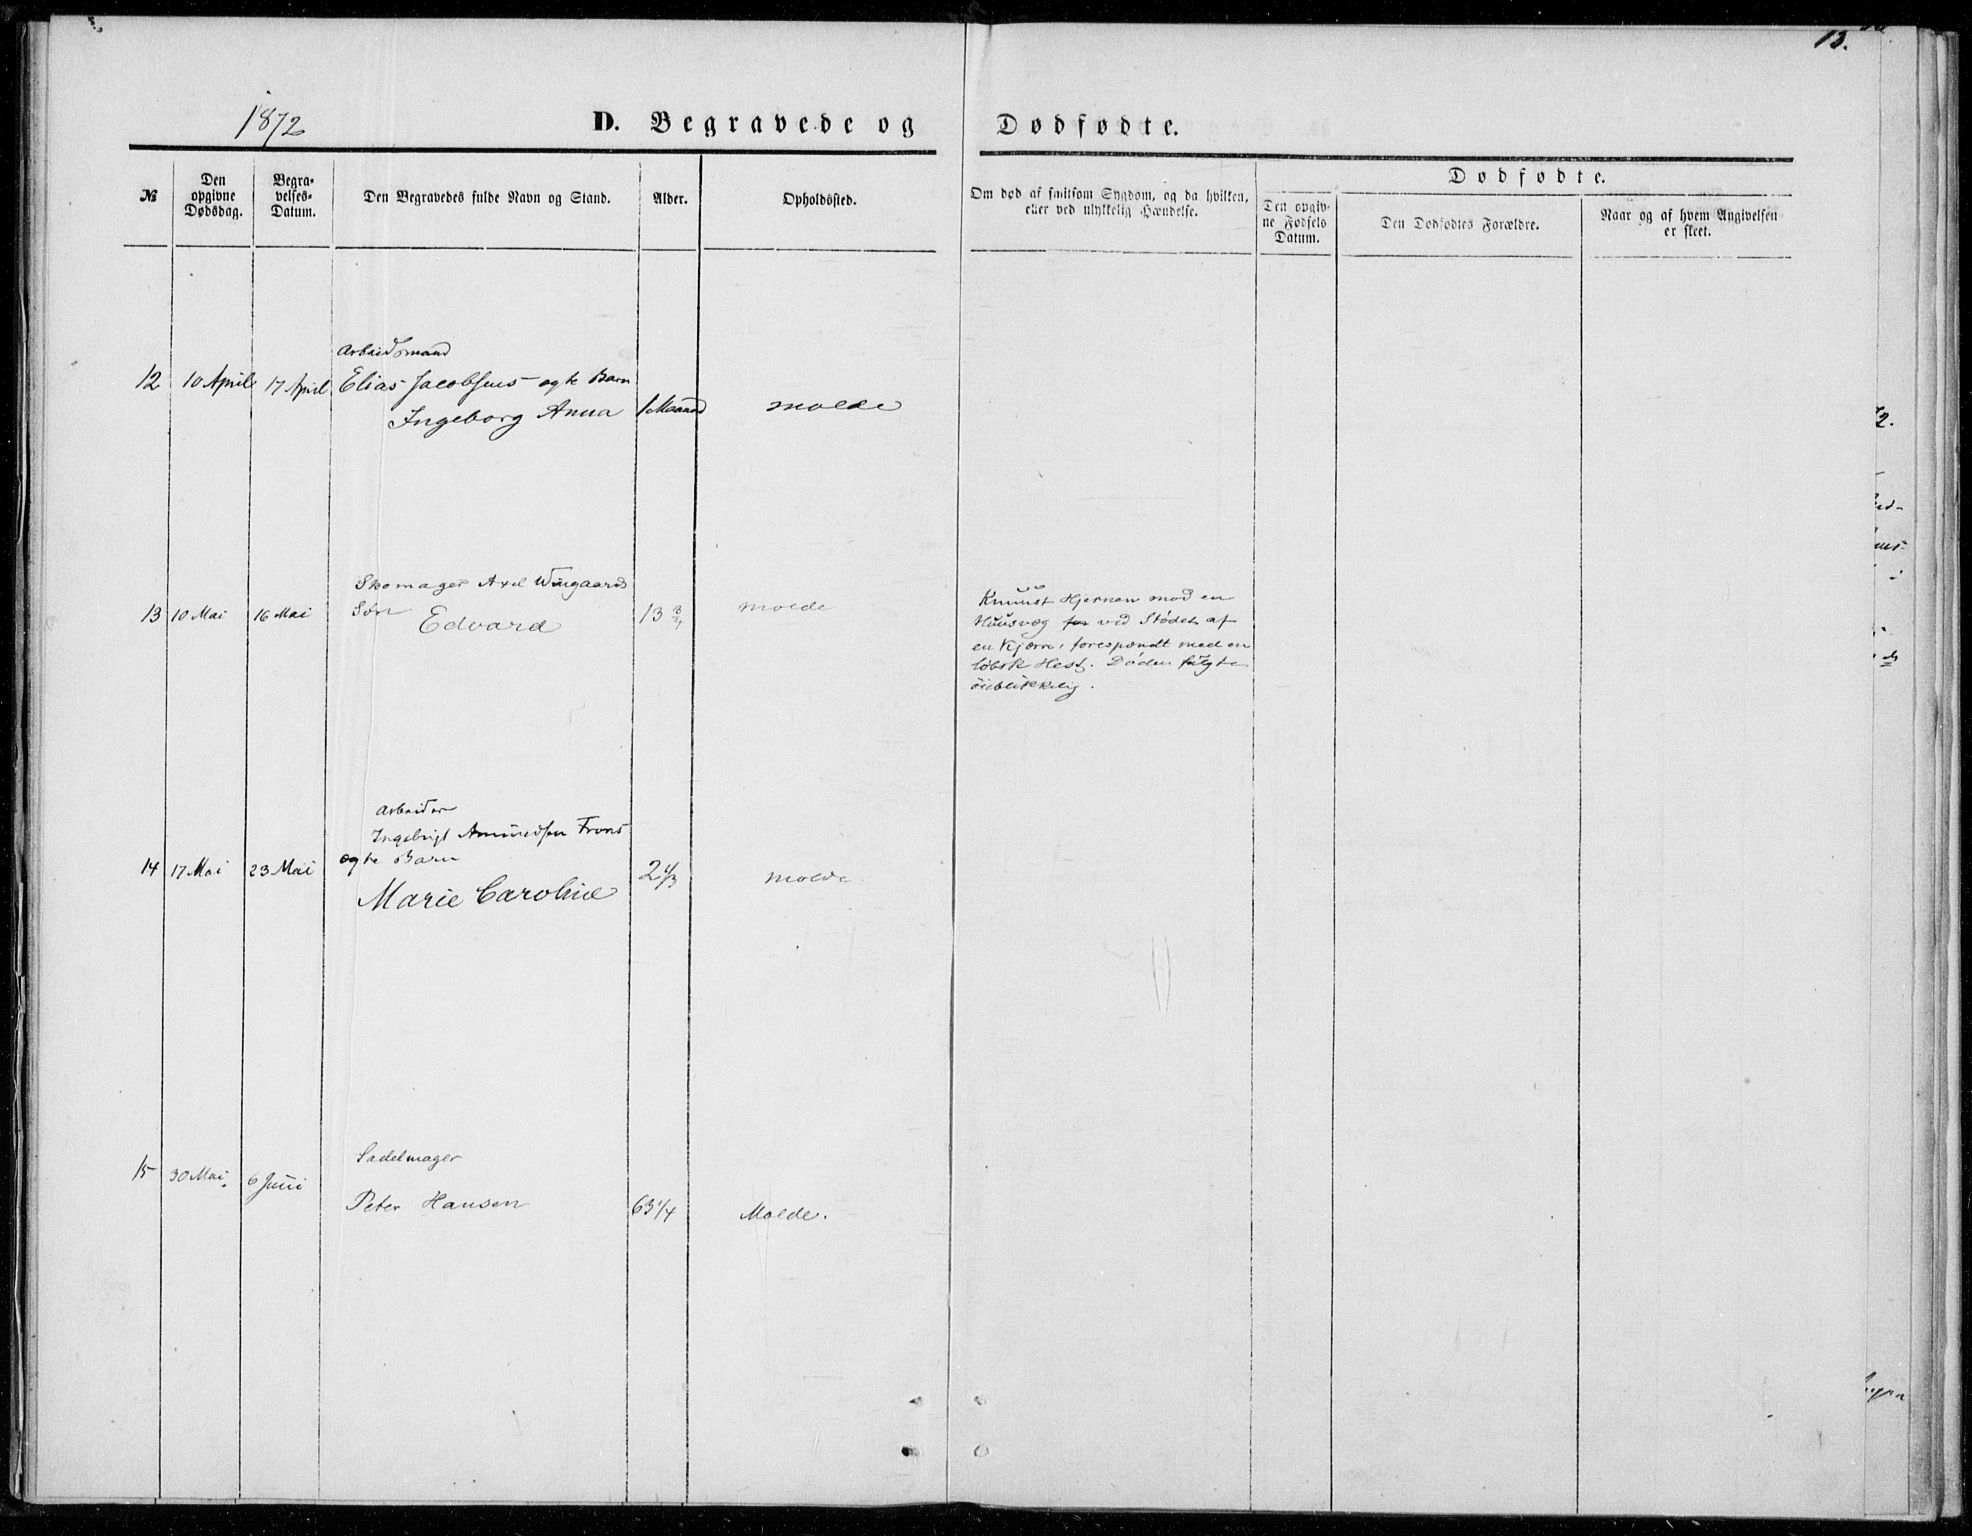 13.
1872
D. Begravede og Dødfødte.
№
Den opgivne Dødsdag.
Begravelses-Datum.
Den Begravedes fulde Navn og Stand.
Alder.
Opholdssted.
Om død af smitsom Sygdom, og da hvilken, eller ved ulykkelig Hændelse.
Dødfødte.
Den opgivne Fødsels Datum.
Den Dødfødtes Forældre.
Naar og af hvem Angivelsen er skeet.
Arbeidsmand
12 10 April 17 April Elias Jacobsens ægte Barn
Ingeborg Anna 1 Maaned Molde
Skomager Axel Wingaards
13 10 Mai 16 Mai Søn Edvard 13 3/4 Molde
Knuust Hjernen mod en
Huusvæg for ved Stødet af
en Kjærre, forespændt med en
løbsk Hest. Døden fulgte
øieblikkelig.
Arbeider
Ingebrigt Amundsen
ægte Barn
14 17 Mai 23 Mai Marie Caroline 2 1/3 Molde
Sadelmager
15 30 Mai. 6 Juni
Peter Hansen 63 1/4 Molde.